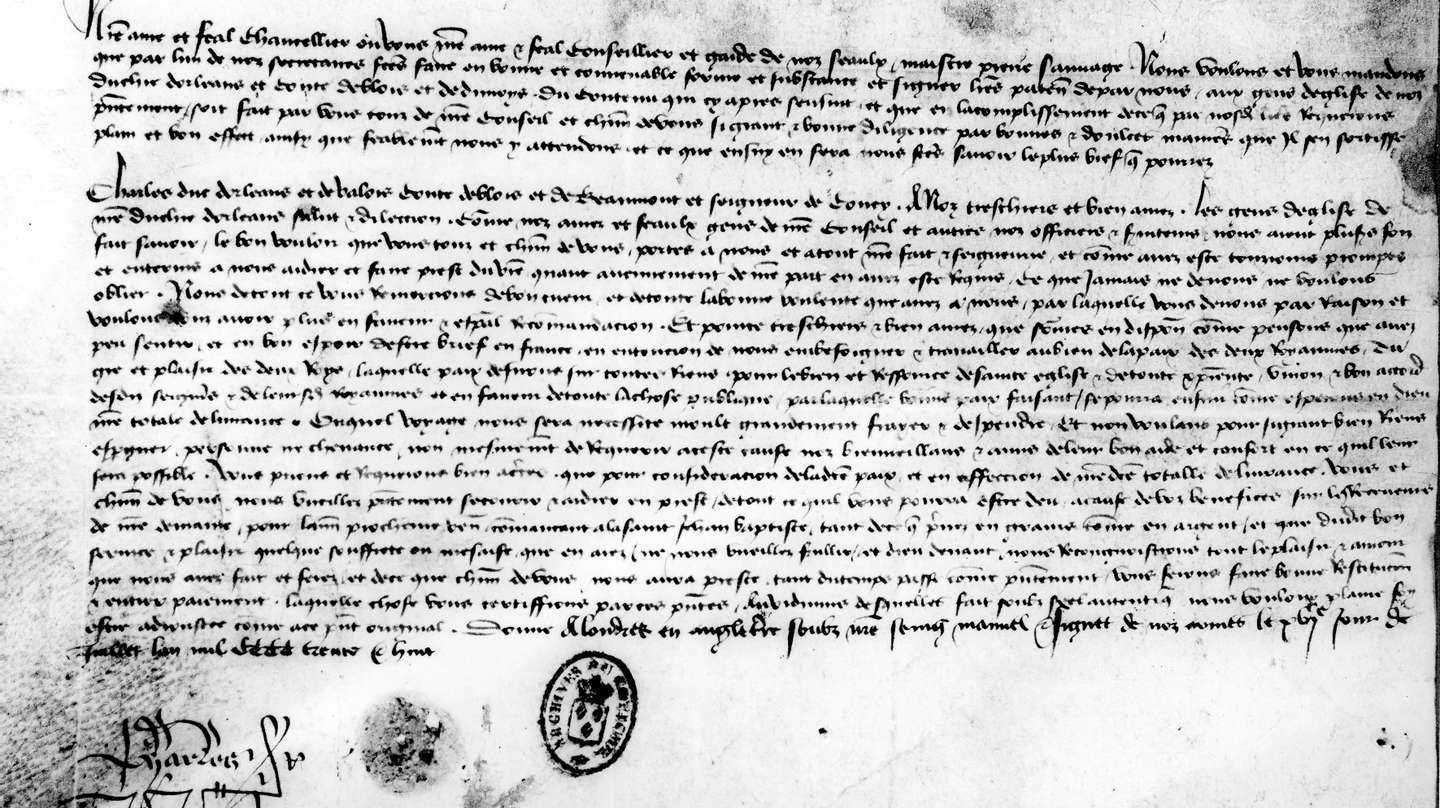 Nre ame et feal Chancellier ou vous nre ame & feal Conseillier et garde de noz seaulx maistre pierre sauvage. Nous voulons et vous mandons
que par lun de noz secretaires fctes faire en bonne et convenable forme et substance et signer lres paten depar nous aux gens deglise de noz
duchie dorleans et Conte de blois et de dunoys. Du Contenu qui cy apres sensuit et que en lacomplissement dece par nosd lres Requerons
pntement soit fait par vous tous de nre Conseil et chun devous signant & bonne diligence par bonnes & doulces manieres que Il sen sortisse
plain et bon effect ainsy que feablemt nous y attendons et ce que ensuy en sera nous fctes savoir leplus brief q pourrez
Charles duc dorleans et de valois Conte deblois et de Beaumont et seigneur de Coucy. A Noz treschiers et bien amez. Les gens deglise de
nre duchie dorleans salut & dilection. Come noz amez et feaulx gens de nre Conseil et autres noz officiers & nous aient plusrs foiz
fait savoir le bon vouloir que vous tous et chun de vous portes a nous et atout nre fait & seigneurie et come avez este tousiours promps
et enterins a nous aidier et faire prest du vre quant aucunement de nre part en avez este Requis. Ce que Jamais ne devons ne voulons
oblier. Nous detout ce vous Remercions debon cuer et detoute labonne voulente que avez a nous par laquelle vous devons par Raison et
voulons avoir plus en faveur & espal Recommandacion. Et pource treschiers & bien amez que somes en dispon come pensons que avez
peu sentir et en bon espoir destre brief en france en entencion de nous embesoigner & travailler aubien delapaix des deux Royaumes. Du
gre et plaisir des deux Roys laquelle paix desirons sur toutes Riens pour lebien et Ressource desainte eglise & detoute xpiente union & bon accord
desdn seigneurs & deleursd Royaumes et en faveur detoute lachose publique par laquelle bonne paix faisant se pourra ensuir come esperons en dieu
nre totale delivrance. Ouquel voyage nous sera necessite moult grandement fraier & despendre. Et non voulans pour signant bien Riens
espargner personne ne chevance non mesmemt de Requerir aceste cause noz bienveillans & amis deleur bon aide et confort en ce quil leur
sera possible. Vous prions et Requerons bien acertes que pour consideracion deladcte paix et en affeccion de nredcte totalle delivrance vous et
chun de vous nous vueillez pntement secourir & aidier en prest detout ce quil vous pourra estre deu acause de voz benefices sur les Receveurs
de nre demaine pour lann prochaine ven comancant alasaint Jehan baptiste tant dece q prenez en grains come en argent et que dudit bon
service & plaisir quelque souffrete ou mesaise que en aiez ne nous vueillez faillir et dieu devant nous Recongnoistrons tout leplaisir & amour
que nous avez fait et ferez et dece que chun devous nous aura preste tant dutemps passe come pntement vous ferons faire bonne Restitucion
& entier paiement laquelle chose vous certiffions par ces pntes Au vidimus desquelles fait soubz seel autentiq nous voulons plaine foy
estre adioustee come ace pnt original. Donne A londres en angleterre soubz nre seing manuel & signet de noz armes le xvje Jour de
Juillet lan mil CCCC trente & huit
Charles